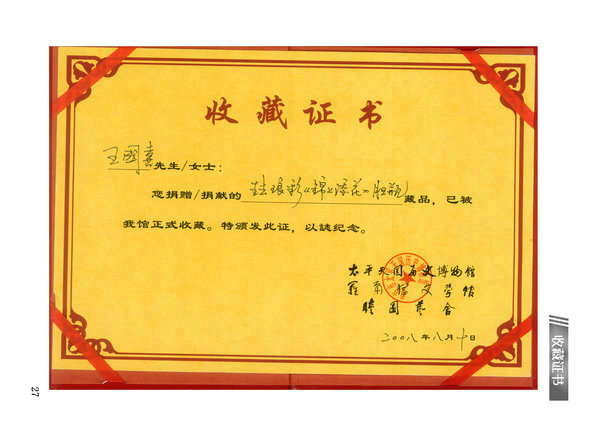 收藏证书
王國喜先生/女士：
您捐赠/捐献的珐琅彩《锦上添花》胆瓶藏品，已被
我馆正式收藏。特颁发此证，以誌纪念。
太平天国历史博物馆
文学馆
瞻园
二〇〇八年八月十日
收藏证书
27